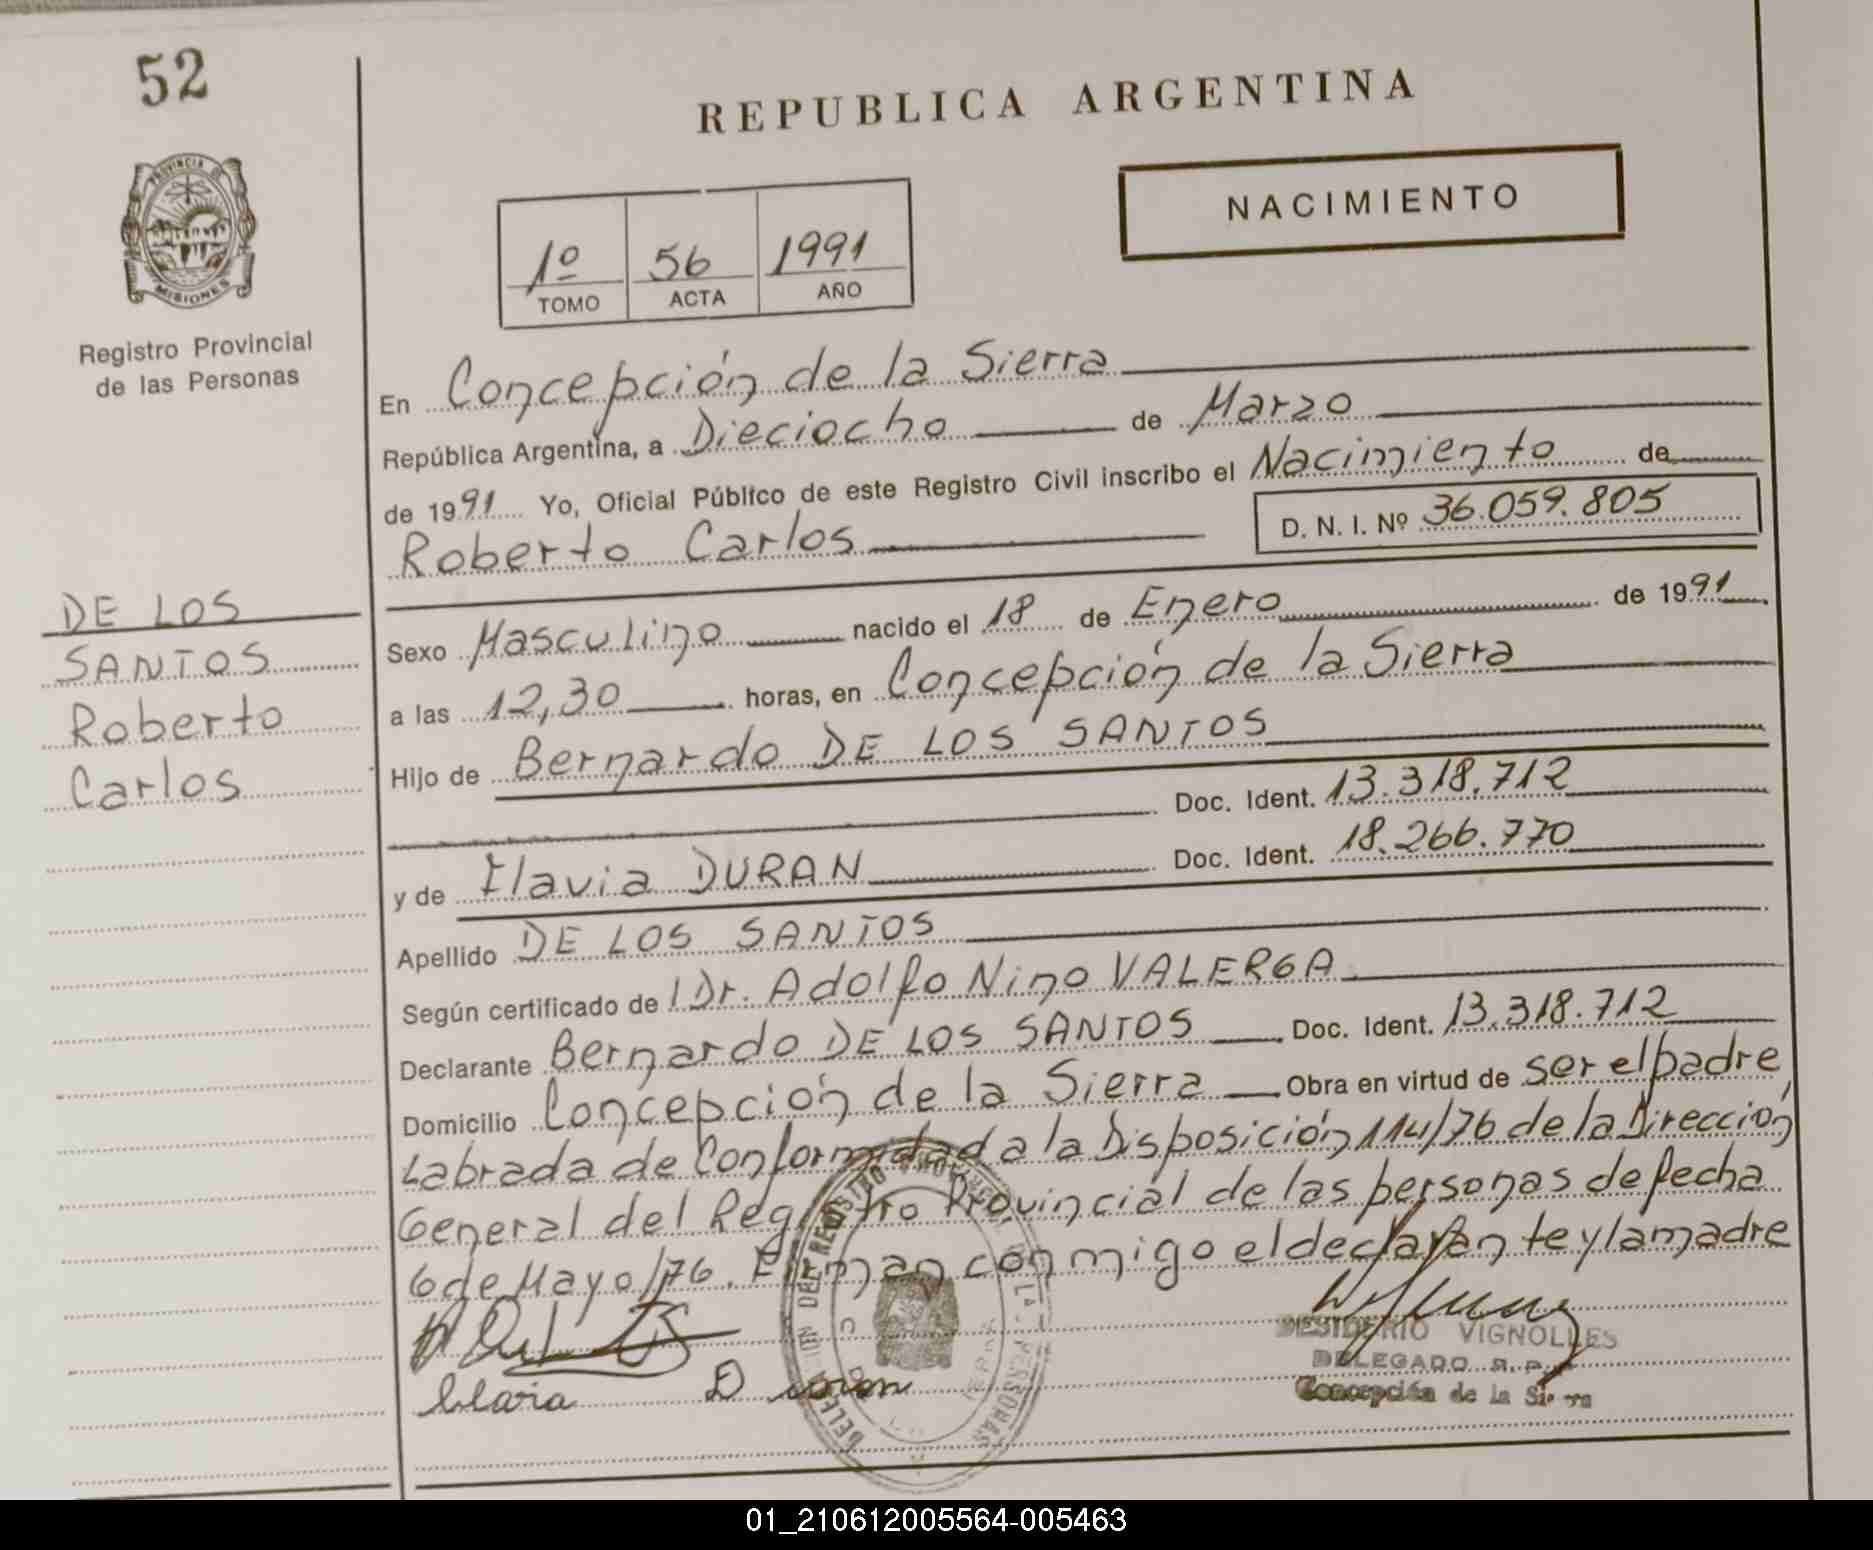 52
REPUBLICA ARGENTINA
NACIMIENTO
PROVINCIA DE
MISIONES
Registro Provincial
de las Personas
1º 56 1991
TOMO ACTA AÑO
En Concepción de la Sierra
República Argentina, a Dieciocho de Marzo
de 1991 Yo, Oficial Público de este Registro Civil inscribo el Nacimiento de
Roberto Carlos D. N. I. Nº 36.059.805
DE LOS
SANTOS
Roberto
Carlos
Sexo Masculino nacido el 18 de Enero de 1991
a las 12,30 horas, en Concepción de la Sierra
Hijo de Bernardo DE LOS SANTOS
Doc. Ident. 13.318.712
y de Flavia DURAN Doc. Ident. 18.266.770
Apellido DE LOS SANTOS
Según certificado de Dr. Adolfo Nino VALERGA
Declarante Bernardo DE LOS SANTOS Doc. Ident. 13.318.712
Domicilio Concepción de la Sierra Obra en virtud de ser el padre,
Labrada de Conformidad a la Disposición 114/76 de la Dirección
General del Registro Provincial de las personas de fecha
6 de Mayo/76. Firman conmigo el declarante y la madre
DESIDERIO VIGNOLLES
DELEGADO R. P.
Concepción de la Sierra
01_210612005564-005463